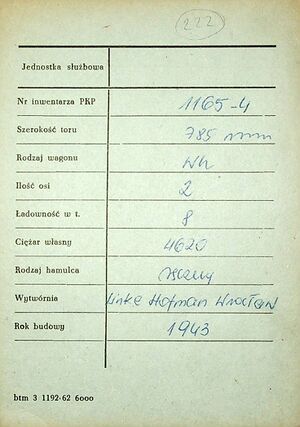 222
Jednostka służbowa
Nr inwentarza PKP 1165-4
Szerokość toru 785 mm
Rodzaj wagonu Wh
Ilość osi 2
Ładowność w t. 8
Ciężar własny 4620
Rodzaj hamulca ręczny
Wytwórnia Linke Hofman Wrocław
Rok budowy 1943
btm 3 1192-62 6000